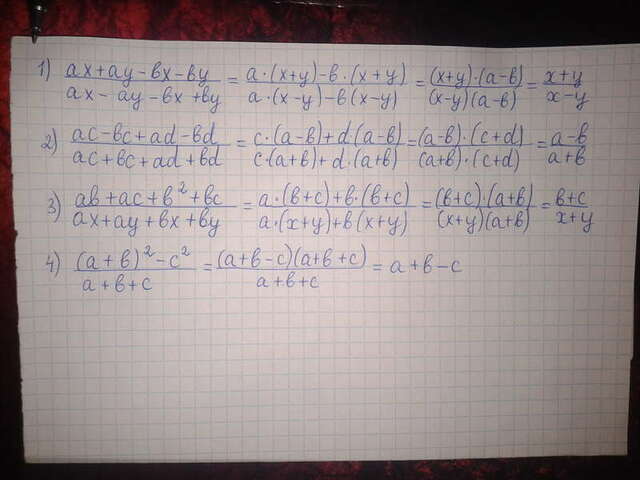 1) (ax+ay-bx-by)/(ax-ay-bx+by) = (a·(x+y)-b·(x+y))/(a·(x-y)-b(x-y)) = ((x+y)·(a-b))/((x-y)(a-b)) = (x+y)/(x-y)
2) (ac-bc+ad-bd)/(ac+bc+ad+bd) = (c·(a-b)+d(a-b))/(c·(a+b)+d·(a+b)) = ((a-b)·(c+d))/((a+b)·(c+d)) = (a-b)/(a+b)
3) (ab+ac+b²+bc)/(ax+ay+bx+by) = (a·(b+c)+b·(b+c))/(a·(x+y)+b(x+y)) = ((b+c)·(a+b))/((x+y)(a+b)) = (b+c)/(x+y)
4) ((a+b)²-c²)/(a+b+c) = ((a+b-c)(a+b+c))/(a+b+c) = a+b-c